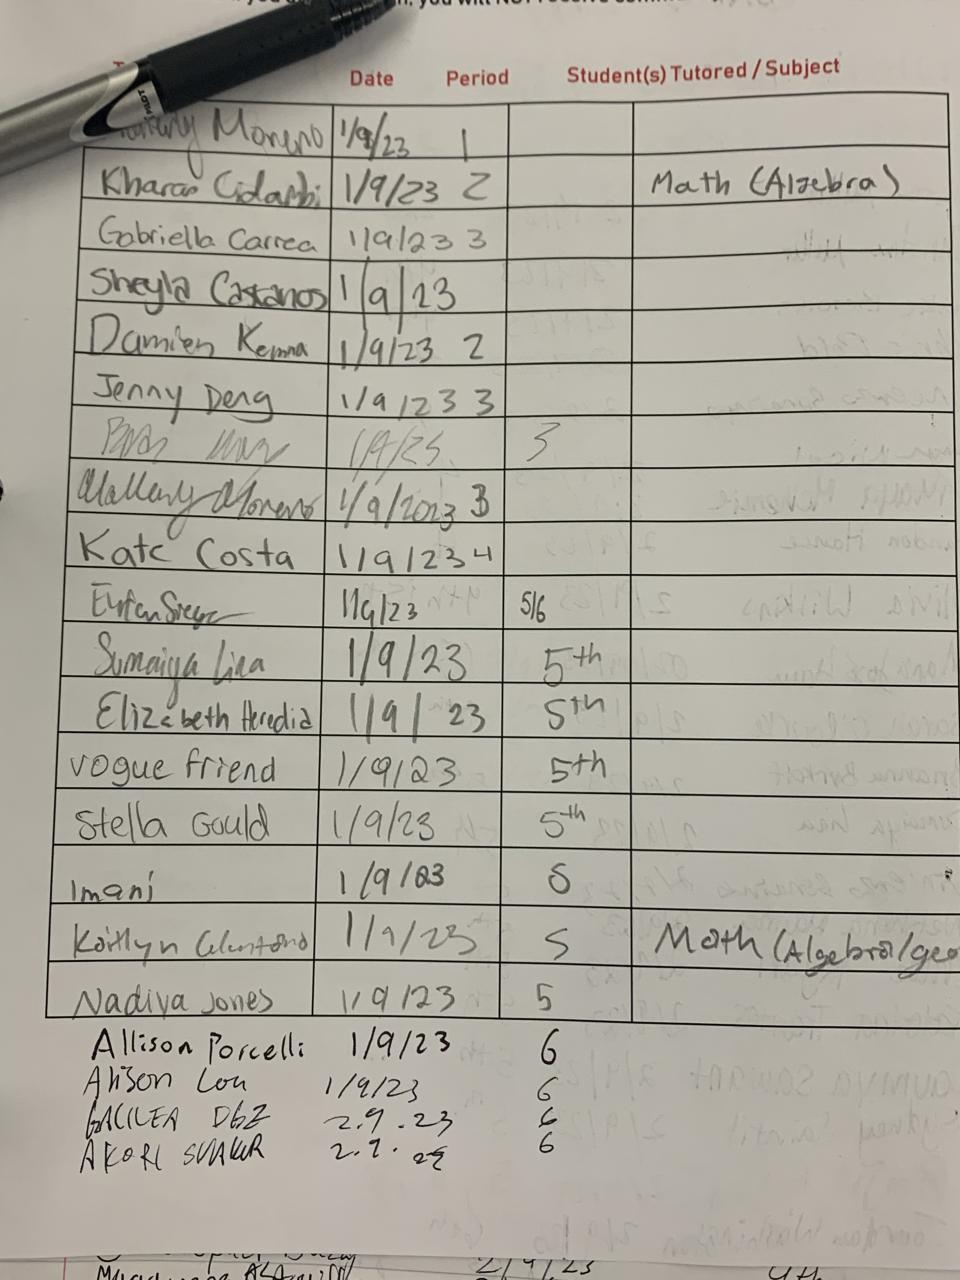 you will NOT receive
PILOT
Date Period Student(s) Tutored / Subject
Moreno 1/9/23 1
Kharan Cidambi 1/9/23 2 Math (Algebra)
Gabriella Carrea 1/9/23 3
Sheyla Castanos 1/9/23
Damien Kenna 1/9/23 2
Jenny Deng 1/9/23 3
1/9/23 3
Mallary Moreno 1/9/2023 3
Kate Costa 1/9/23 4
1/9/23 5/6
Sumaiya Lira 1/9/23 5th
Elizabeth Heredia 1/9/23 5th
vogue friend 1/9/23 5th
Stella Gould 1/9/23 5th
Imani 1/9/23 5
Kaitlyn 1/9/23 5 Math (Algebra/geo
Nadiya Jones 1/9/23 5
Allison Porcelli 1/9/23 6
Alison Lou 1/9/23 6
2.9.23 6
AKORI 6
2/9/23 4th